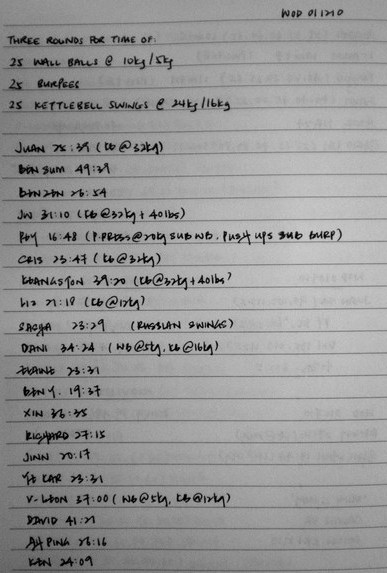 WOD 011210
THREE ROUNDS FOR TIME OF:
25 WALL BALLS @ 10kg/5kg
25 BURPEES
25 KETTLEBELL SWINGS @ 24kg/16kg
JUAN 25:39 (KB@32kg)
BEN SUM 49:39
26:54
JW 31:10 (KB@32kg + 40lbs)
ROY 16:48 (P.PRESS@20kg SUB WB, PUSH UPS SUB BURP)
CRIS 23:47 (KB@32kg)
39:20 (KB@32kg+40lbs)
LIZ 21:18 (KB@12kg)
SASHA 23:29 (RUSSIAN SWINGS)
DANI 34:24 (WB@5kg, KB@16kg)
ELAINE 23:31
BEN Y. 19:37
XIN 36:35
RICHARD 27:15
JINN 20:17
YE KAR 23:31
V-LEON 37:00 (WB@5kg, KB@12kg)
DAVID 41:21
AH PING 26:16
KEN 24:09